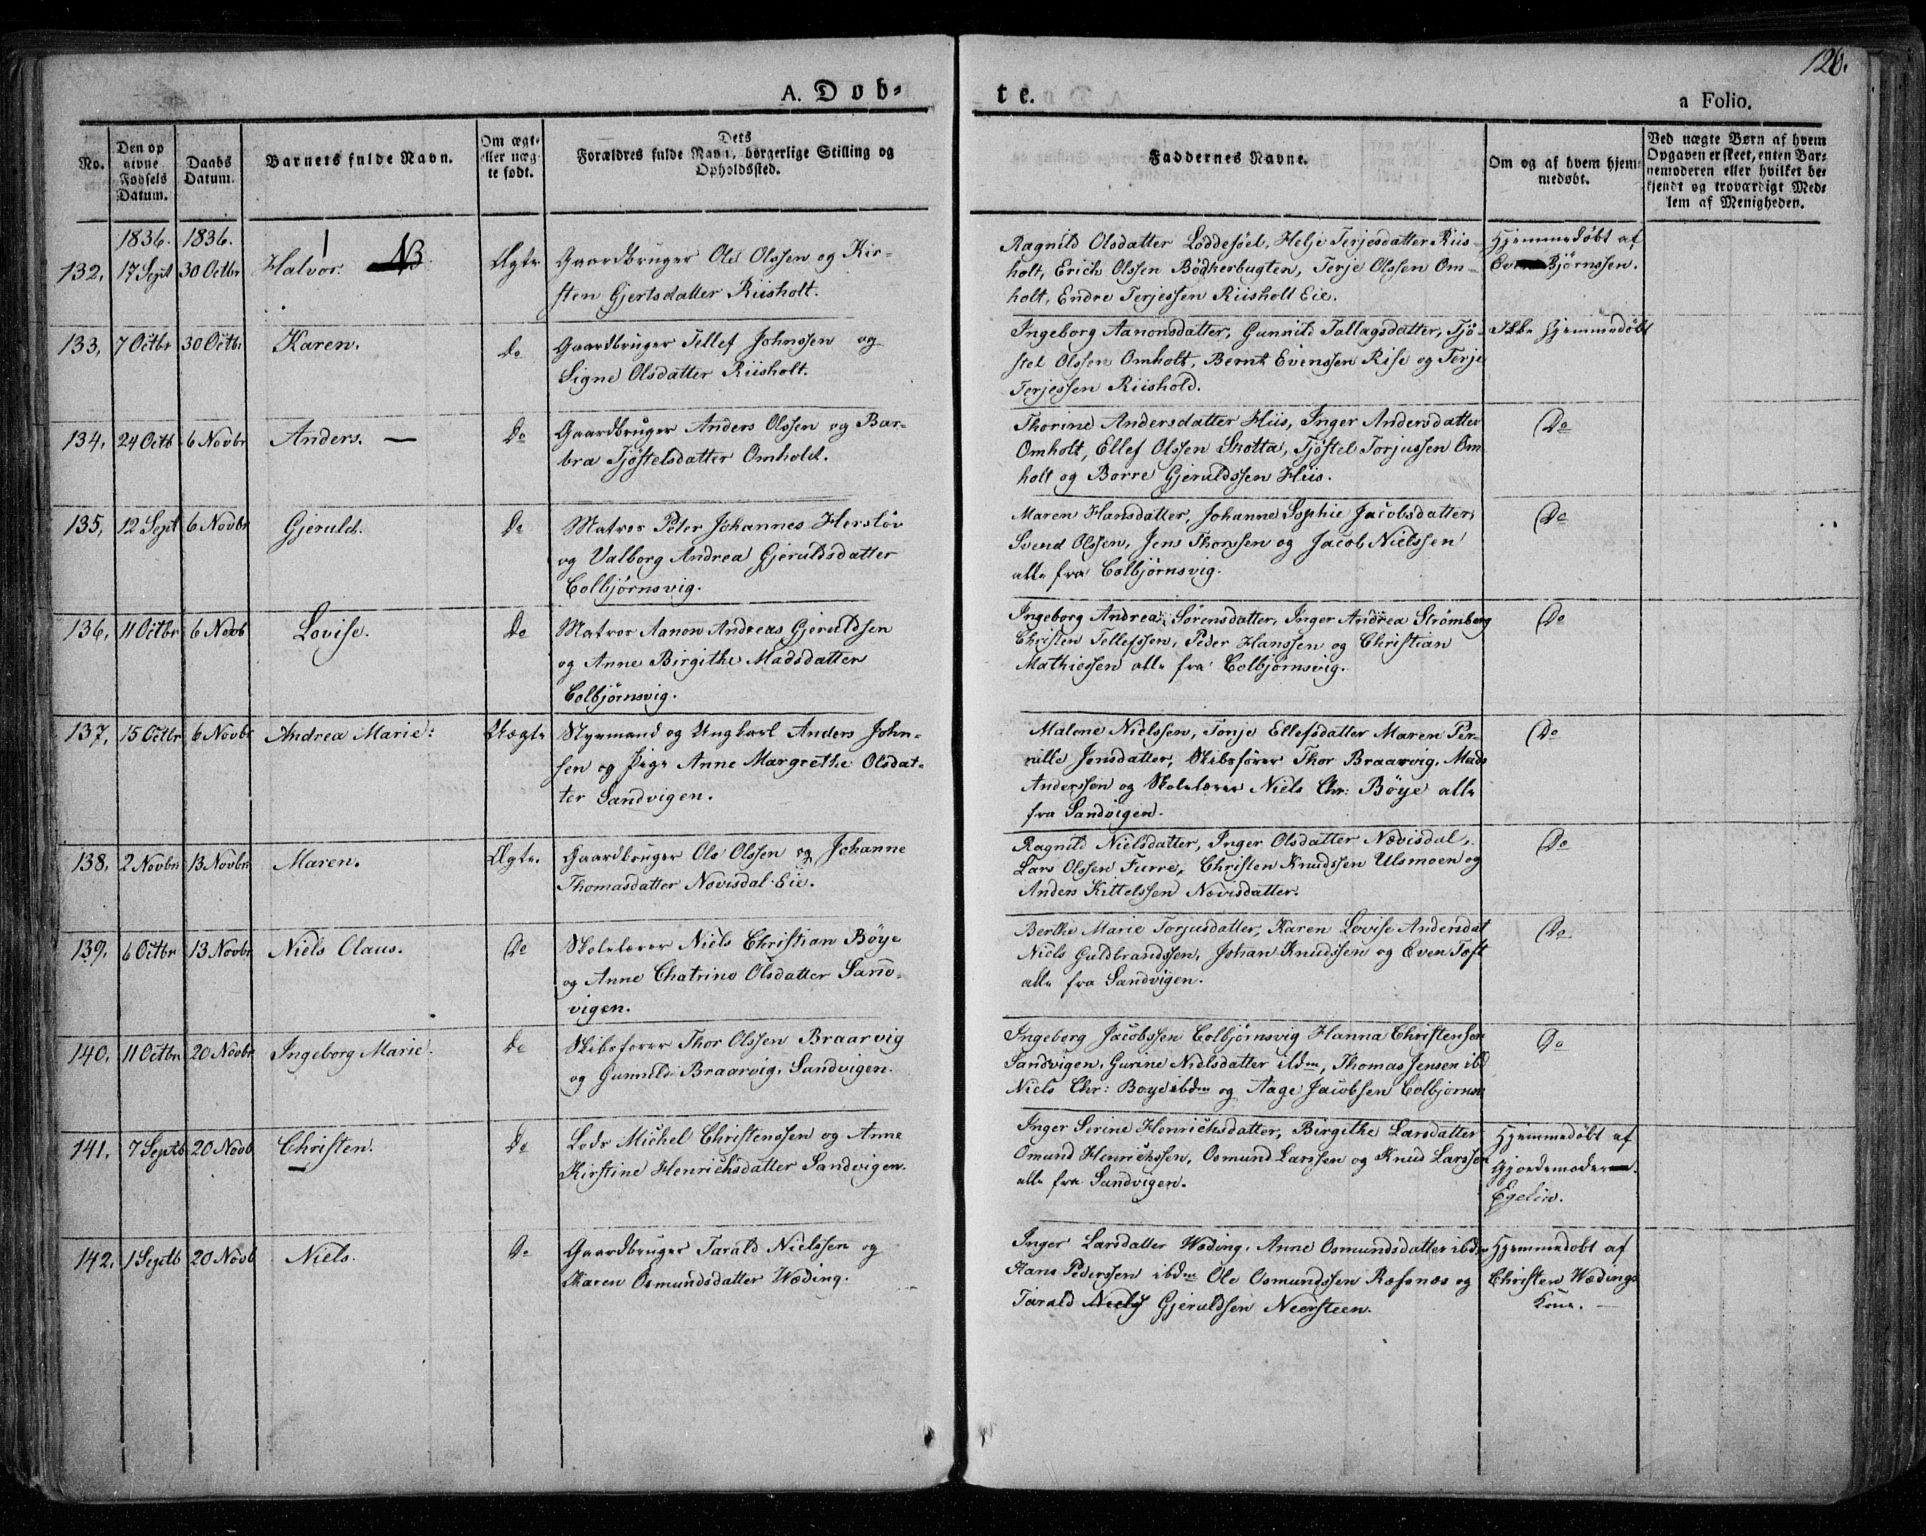 126.
A. Døb-
te.
a Folio.
No.
Den op
givne
Fødsels
Datum.
Daabs
Datum.
Barnets fulde Navn.
Om ægt-
eller uæg-
te født.
Dets
Forældres fulde Navn, borgerlige Stilling og
Opholdssted.
Faddernes Navne.
Om og af hvem hjem-
medøbt.
Ved uægte Børn af hvem
Opgaven er skeet, enten Bar-
nemoderen eller hvilket be-
kjendt og troværdigt Med-
lem af Menigheden.
1836. 1836.
132, 17 Sept 30 Octbr Halvor. NB Ægte Gaardbruger Ole Olssen og Kir-
sten Gjertsdatter Riisholt.
Ragnild Olsdatter Løddesøel, Helje Terjesdatter Riis-
holt, Erich Olssen Bødkerbugten, Terje Olssen Om-
holt, Endre Terjessen Riisholt Eie.
Hjemmedøbt af
Bjørnssen.
133, 7 Octbr 30 Octbr Karen. Do Gaardbruger Tellef Johnssen og
Signe Olsdatter Riisholt.
Ingeborg Aanonsdatter, Gunnild Tallagsdatter, Tjø-
stel Olssen Omholt, Bernt Evenssen Rise og Terje
Terjessen Riishold.
Ikke Hjemmedøbt
134, 24 Octb 6 Novbr Anders. — Do Gaardbruger Anders Olssen og Bar-
bra Tjøstelsdatter Omholt.
Thorine Andersdatter Hiis, Inger Andersdatter
Omholt, Ellef Olssen Skotta, Tjøstel Torjussen Om
holt og Borre Gjeruldssen Hiis.
Do
135, 12 Sept 6 Novbr Gjeruld. Do Matros Peter Johannes Herslöv
og Valborg Andrea Gjeruldsdatter
Colbjørnsvig.
Maren Hansdatter, Johanne Sophie Jacobsdatter,
Svend Olssen, Jens Thorssen og Jacob Nielssen
alle fra Colbjørnsvig.
Do
136, 11 Octbr 6 Novb Lovise. Do Matros Aanon Andreas Gjeruldsen
og Anne Birgithe Madsdatter
Colbjørnsvig.
Ingeborg Andrea Sörensdatter, Inger Andrea Strømberg
Christen Tellefssen, Peder Hanssen og Christian
Mathiessen alle fra Colbjørnsvig.
Do
137, 15 Octbr 6 Novbr Andrea Marie: Uægte Styrmand og Ungkarl Anders John-
sen og Pige Anne Margrethe Olsdat-
ter Sandvigen.
Malene Nielssen, Tonje Ellefsdatter Maren Per-
nille Jensdatter, Skibsfører Thor Braarvig, Mads
Anderssøn og Skolelærer Niels Chr: Böye alle
fra Sandvigen.
Do
138, 2 Novbr 13 Novbr Maren. Ægte. Gaardbruger Ole Olssen og Johanne
Thomasdatter Nævisdal Eie.
Ragnild Nielsdatter, Inger Olsdatter Nævisdal,
Lars Olssen Furre, Christen Knudssen Ulsmoen og
Anders Kittelssen Nævisdatter.
Do
139, 6 Octbr 13 Novbr Niels Claus. Do Skolelærer Niels Christian Böye
og Anne Chatrine Olsdatter Sand-
vigen.
Berthe Marie Torjusdatter, Karen Lovise Andersdat
Niels Guldbrandssen, Johan Knudssen og Even Toft
alle fra Sandvigen.
Do
140, 11 Octbr 20 Novbr Ingeborg Marie. Do Skibsfører Thor Olssen Braarvig
og Gunnild Braarvig, Sandvigen.
Ingeborg Jacobssen Colbjørnsvig Hanna Christensen
Sandvigen, Gurine Nielsdatter ibdm, Thomas Jensen ibd
Niels Chr: Boye ibdm og Aage Jacobsen Colbjørnsv
Do
141, 7 Septb 20 Novb Christen. Do Lods Michel Christenssen og Anne
Kirstine Henrichsdatter Sandvigen.
Inger Serine Henrichsdatter, Birgithe Larsdatter
Omund Henrichssen, Osmund Larssen og Knud Larssen
alle fra Sandvigen.
Hjemmedøbt af
Gjordemoder
142, 1 Septb 20 Novb Niels. Do Gaardbruger Tarald Nielssen og
Karen Osmundsdatter Wæding.
Inger Larsdatter Wæding, Anne Osmundsdatter ibdm
Hans Pederssen ibdm Ole Osmundssen Ræfsnæs og
Tarald Niels Gjeruldsen Neersteen.
Hjemmedøbt af
Christen Wædings
Kone.